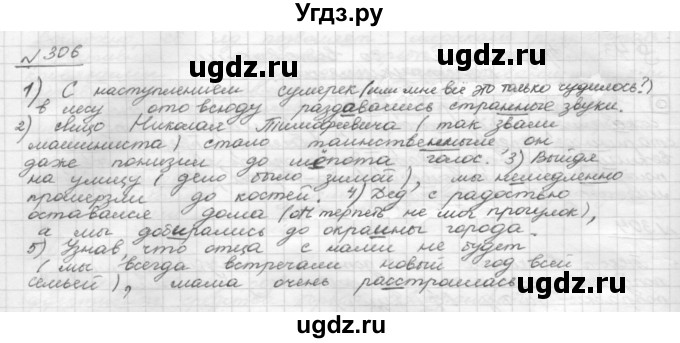 Угдз.ру
N 306
1) С наступлением сумерек (или мне всё это только чудилось?)
в лесу отовсюду раздавались странные звуки.
2) Лицо Николая Тимофеевича (так звали
машиниста) стало таинственным, он
даже понизил до шёпота голос. 3) Выйдя
на улицу (дело было зимой), мы немедленно
промёрзли до костей. 4) Дед с радостью
оставался дома (он терпеть не мог прогулок),
а мы добирались до окраины города.
5) Узнав, что отца с нами не будет
(мы всегда встречали новый год всей
семьей), мама очень расстроилась
ugdz.ru ugdz.ru ugdz.ru
ugdz.ru ugdz.ru
ugdz.ru ugdz.ru ugdz.ru
ugdz.ru ugdz.ru
ugdz.ru ugdz.ru ugdz.ru